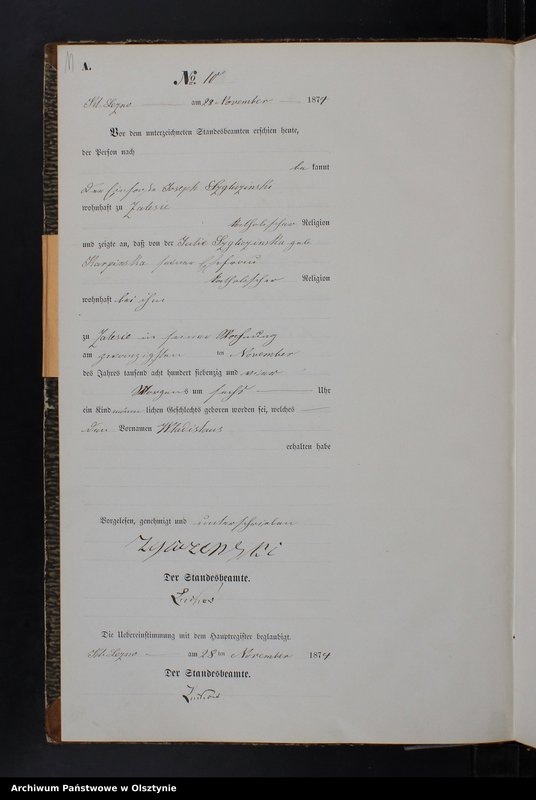 A.
No. 10
am 28 November 1874
Vor dem unterzeichneten Standesbeamten erschien heute,
der Person nach
be kannt
Joseph
wohnhaft zu Zalesie
katholischer Religion
und zeigte an, daß von der Julie geb
Karpinska seiner Ehefrau
katholischer Religion
wohnhaft bei ihm
zu Zalesie in seiner Wohnung
am zwanzigsten ten November
des Jahres tausend acht hundert siebenzig und vier
Morgens um sechs Uhr
ein Kind männ lichen Geschlechts geboren worden sei, welches
den Vornamen Wladislaus
erhalten habe
Vorgelesen, genehmigt und unterschrieben
Der Standesbeamte.
Die Uebereinstimmung mit dem Hauptregister beglaubigt.
am 28 ten November 1874
Der Standesbeamte.
Archiwum Państwowe w Olsztynie